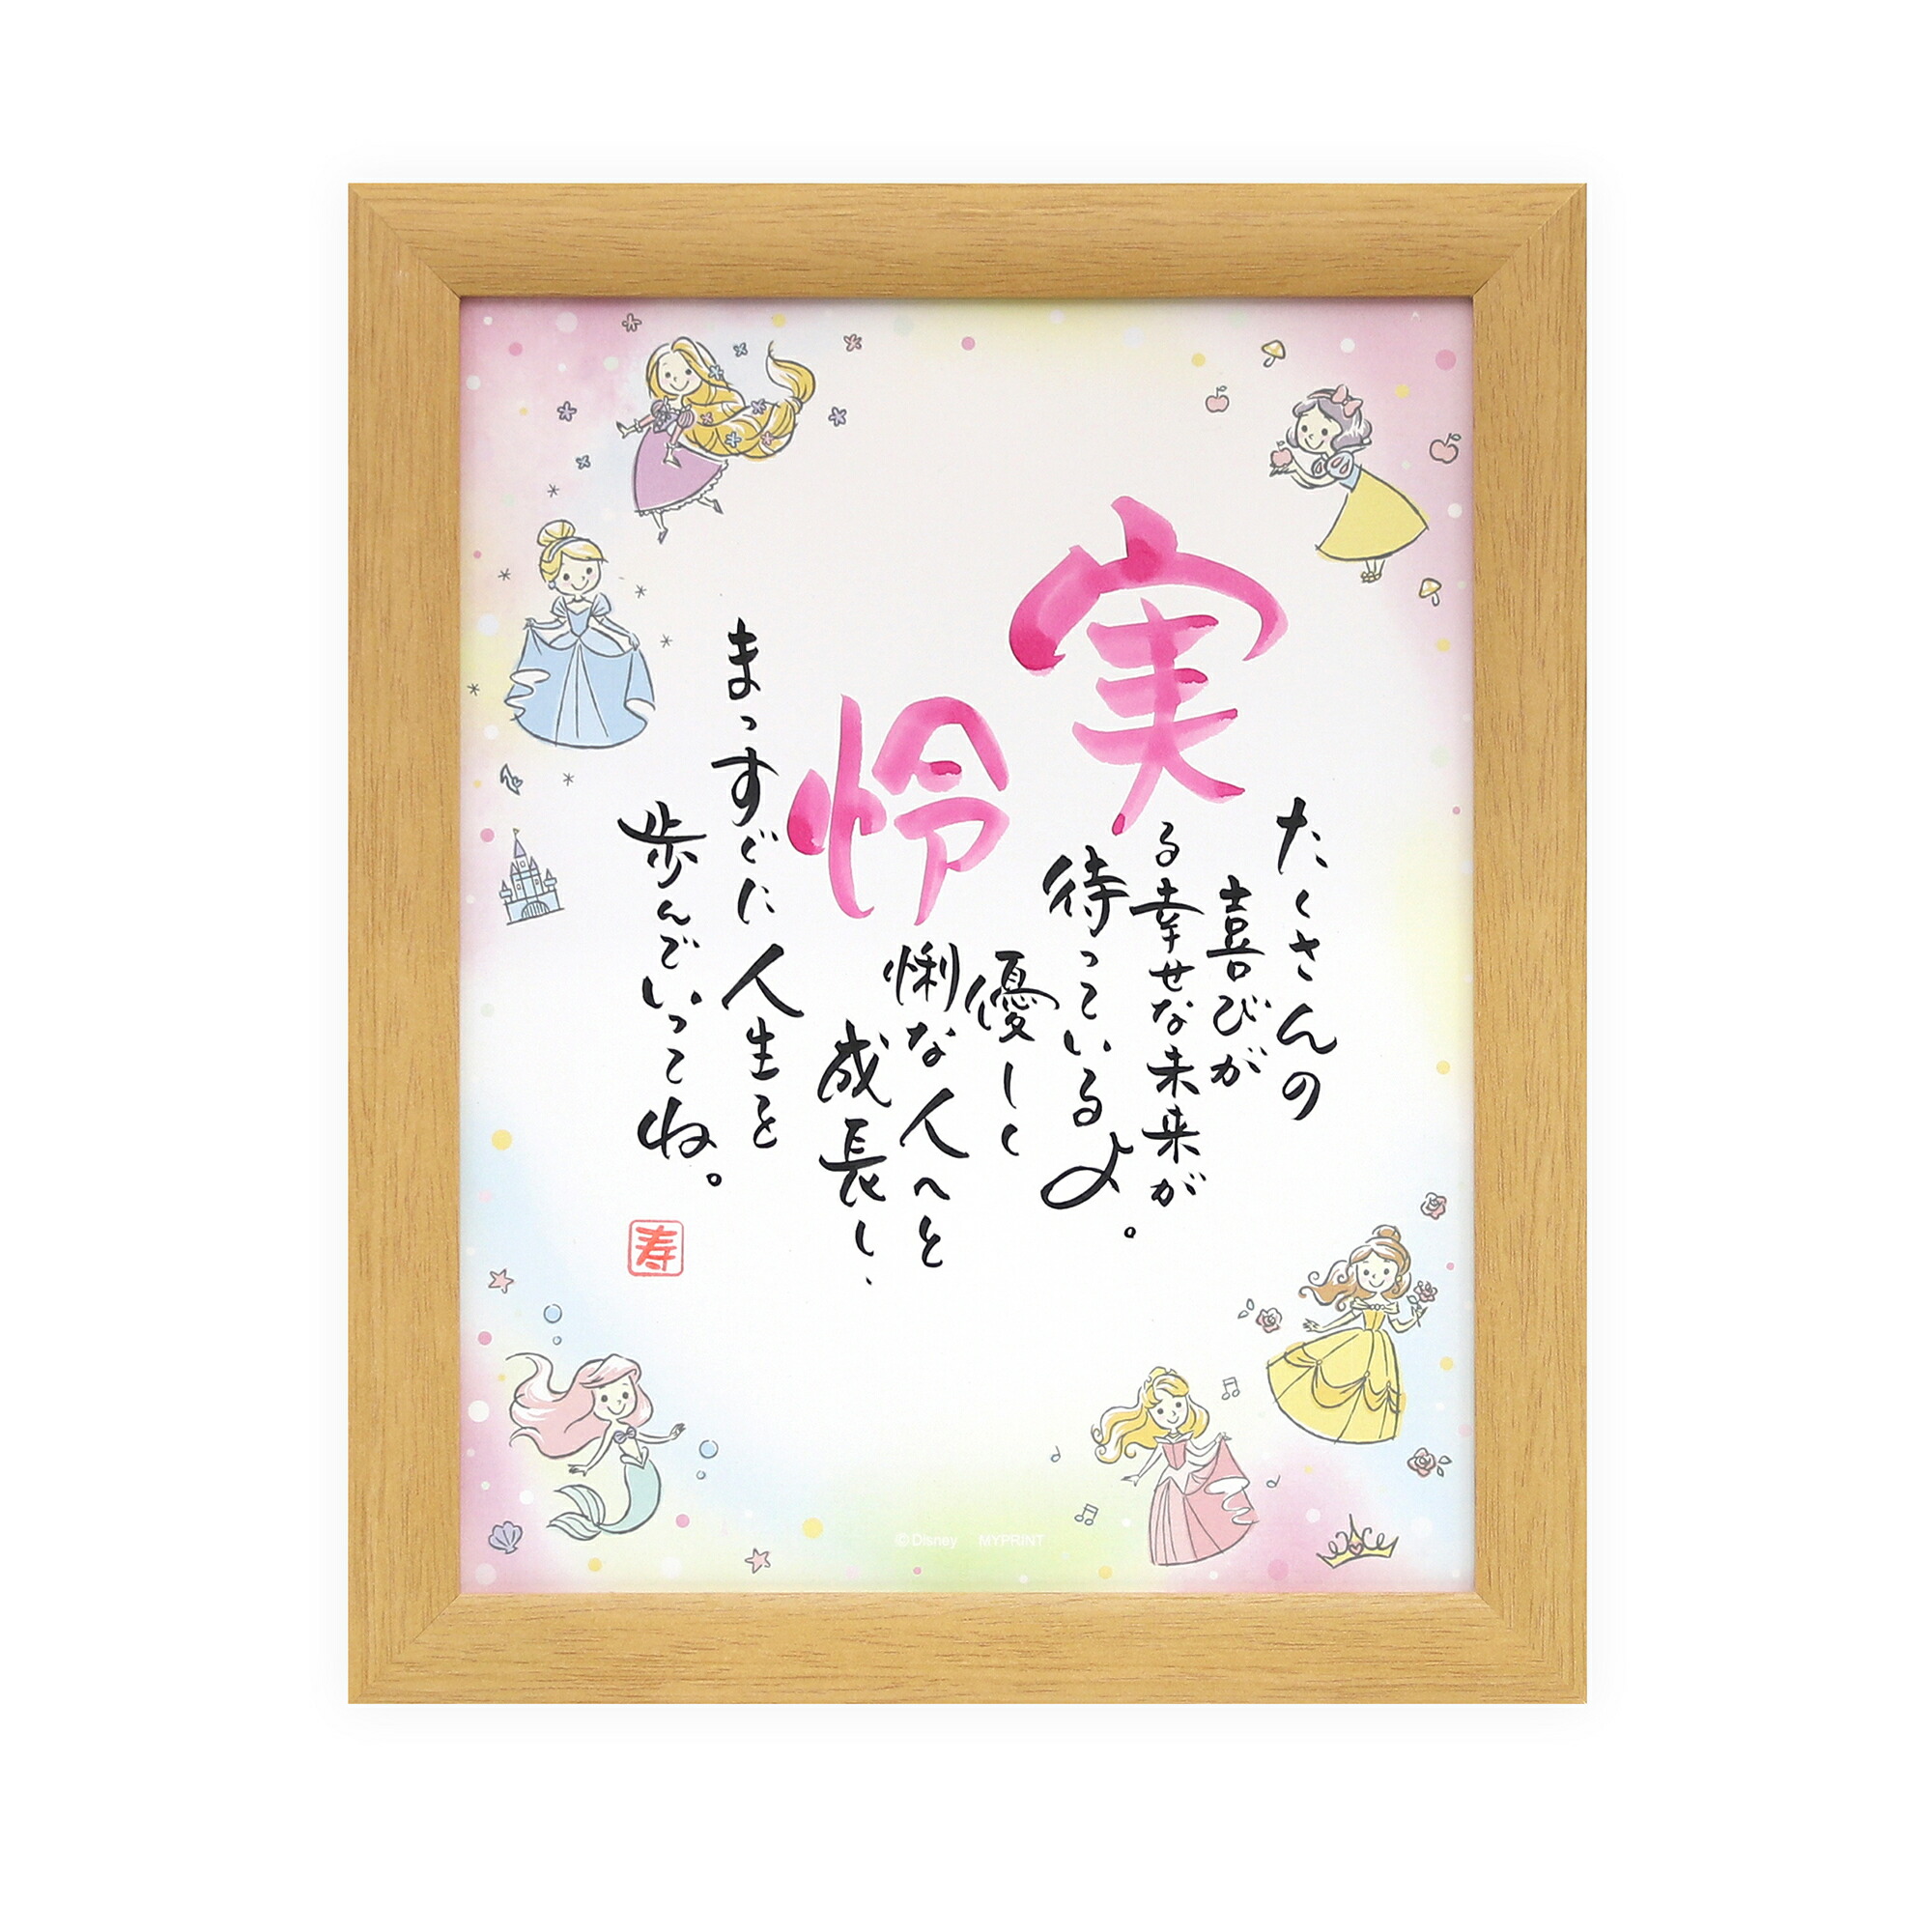 たくさんの
喜びが
実
る幸せな未来が
待っているよ。
優しく
怜
悧な人へと
成長し、
まっすぐな人生を
歩んでいってね。
寿
©Disney MYPRINT